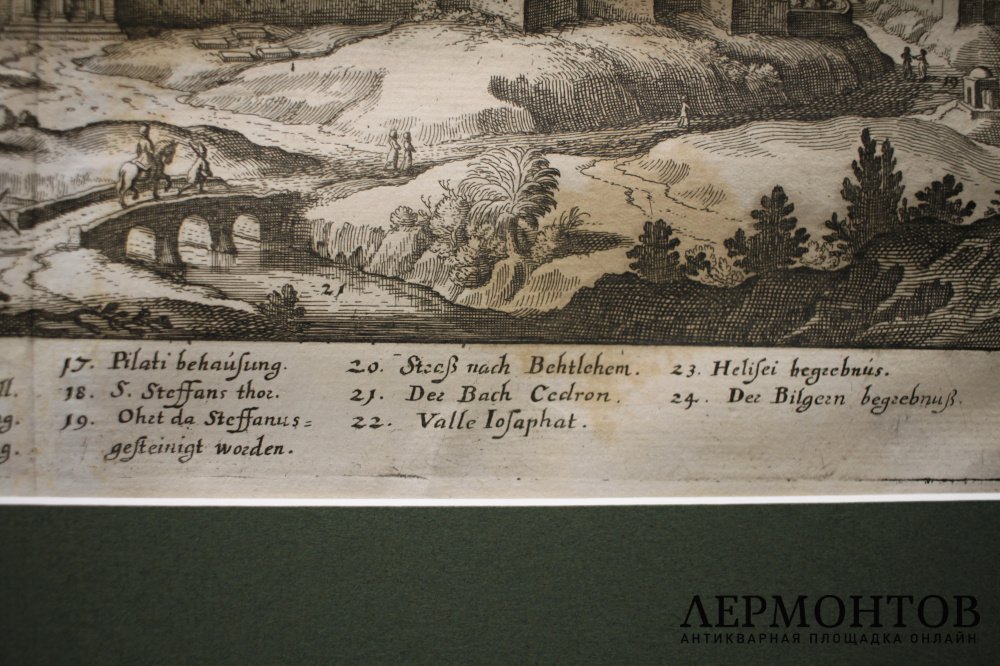 21
17. Pilati behaúsung.
18. S. Steffans thor.
19. Ohrt da Steffanus=
gesteinigt worden.
20. Straß nach Behtlehem.
21. Der Bach Cedron.
22. Valle Iosaphat.
23. Helisei begrebnús.
24. Der Bilgern begrebnuß.
ЛЕРМОНТОВ
АНТИКВАРНАЯ ПЛОЩАДКА ОНЛАЙН